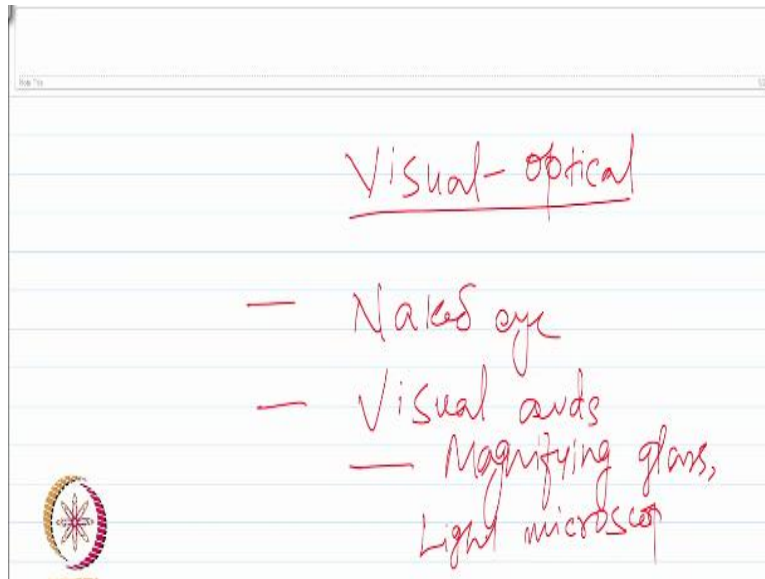 Note Title
Visual - optical
— Naked eye
— Visual aids
— Magnifying glass,
Light microscop